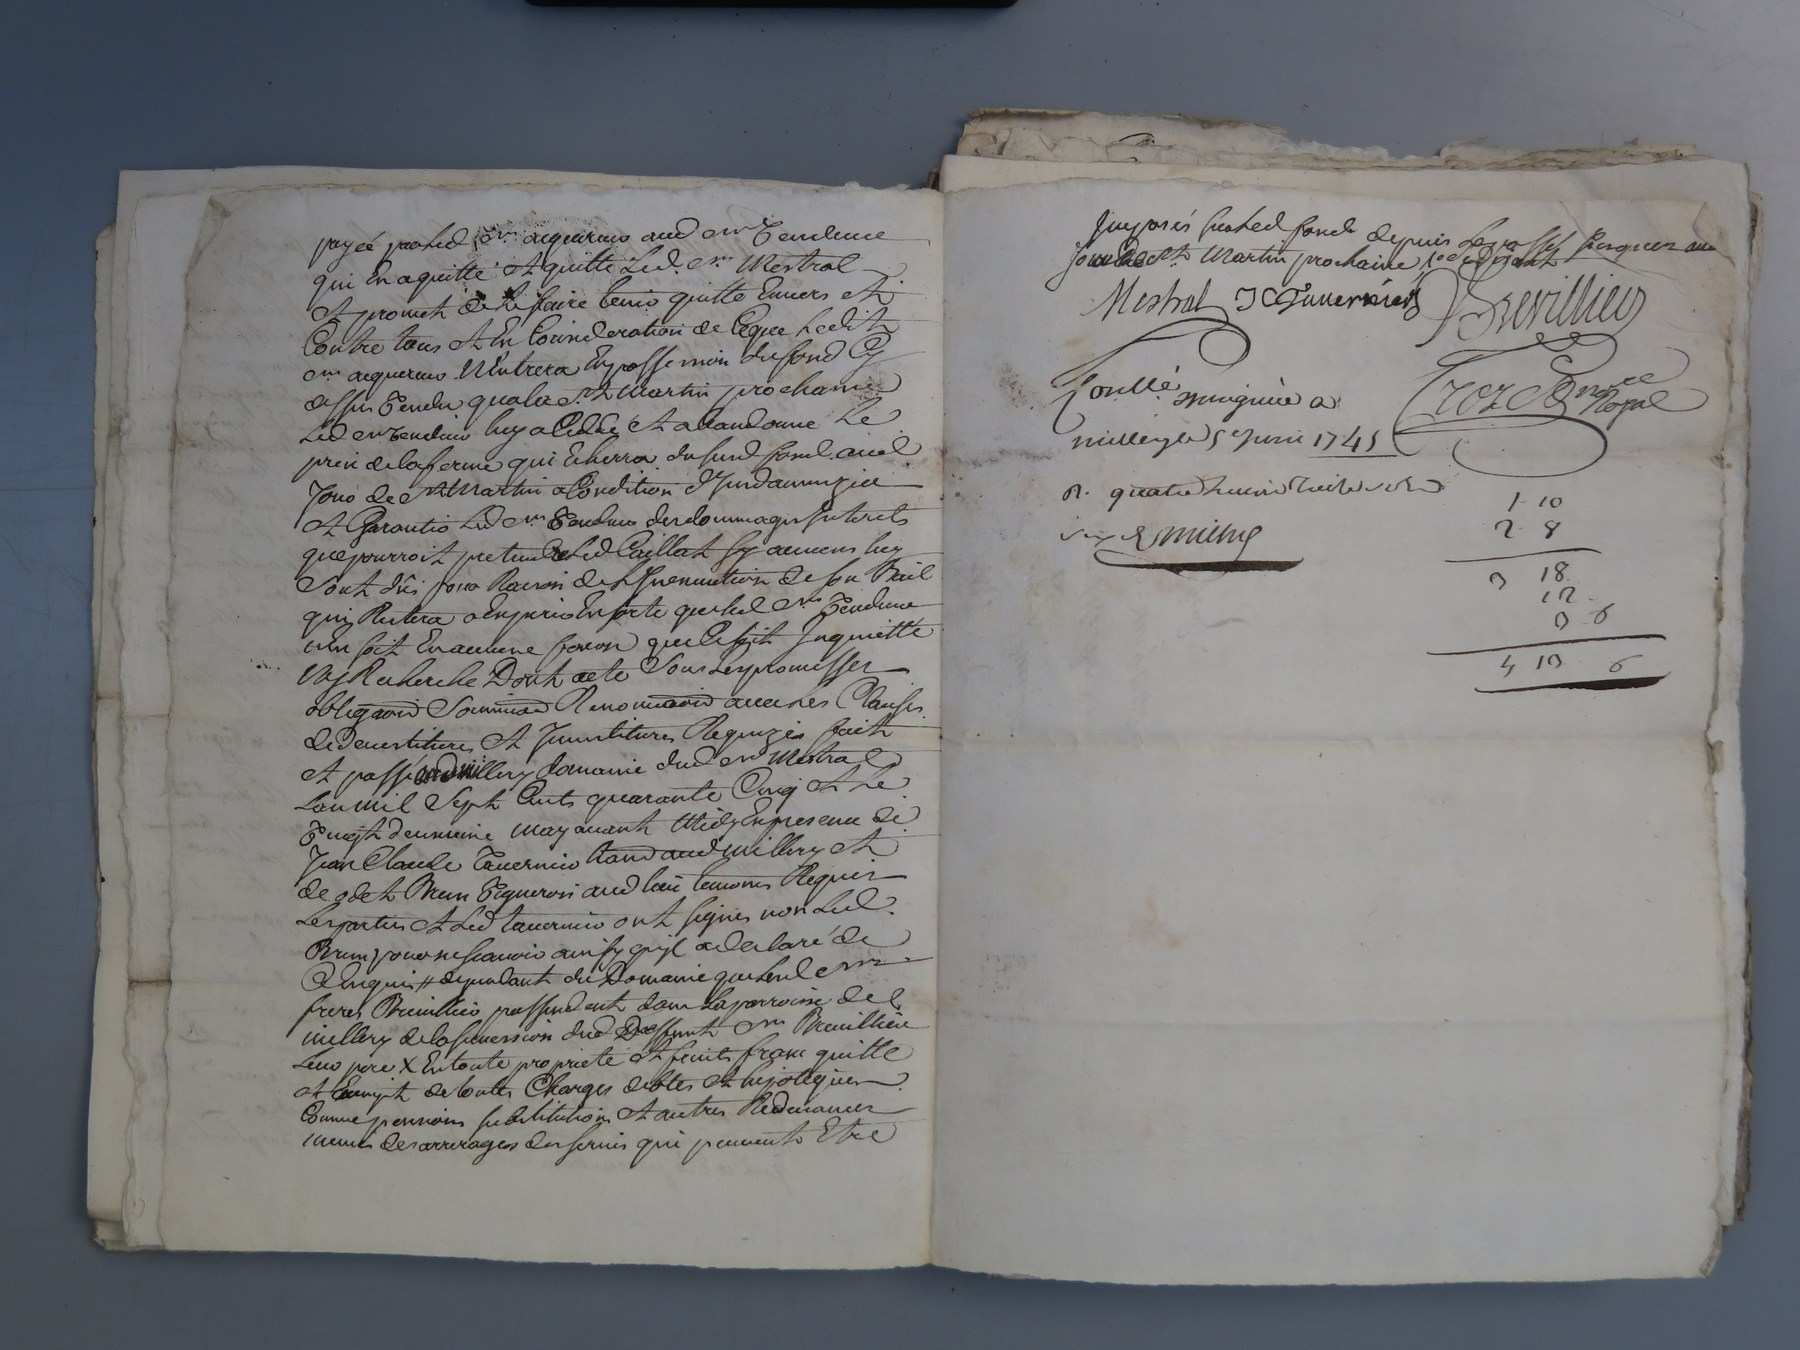 payée par led. Sr. acquereur aud. sr. vendeur
qui En a quitté et quitte Led. sr. Mestral
et promet de le faire tenir quitte Envers et
Contre tous et En Consideration de ce que Ledit
sr. acquereur N'Entrera En possession du fond Cy
dessus vendu qua la st. Martin prochaine
Led. sr. vendeur luy a Cédé et abandonné Le
prix de la ferme qui Echerra dud. fond aud.
Jour de st. Martin a Condition d'Indamnizer
et Garantir Led. sr. vendeur des dommages Interets
que pourroit pretendre Led. Caillat sy aucuns luy
sont dûs pour Raison de l'Inexecution de son Bail
qui Restera En sorte que led. sr. vendeur
n'en soit En aucune façon que ce soit Inquietté
ny Recherché Dont acte sous les promesses
obligaons soumisons Renonciaons avec les Clauses
de devestitures et Investitures Requizes fait
et passé aud. millery domaine dud. sr. Mestral
Lan mil Sept Cents quarante Cinq et Le
vingt deuxieme may avant Midy En presence de
Jean Claude Tavernier aud. millery et
de Brun vigneron aud. lieu temoins Requis
Les parties et Led. tavernier ont signés non Led.
Brun pour ne sçavoir ainsy qu'il a declaré de
Ce Enquis // dependant du Domaine que lesd. srs.
freres Brevillier possedent dans la parroisse de
millery de la succession dud. Deffunt sr. Brevillier
leur pere X En toute proprieté et fruits franc quitte
et Exempt de toutes Charges debtes et hipoteques
Comme pensions substitutions et autres Redevances
memes des arrerages des servis qui peuvent Etre
Imposés sur led. fond depuis Le passé Jusques au
Jour de st. Martin prochaine
Mestral JC Tavernier Brevillier
Controllé Insinué a Croze nore Royal
millery le 5e Juin 1745
R. quatre livres treize sols
six d. michel
1 - 10
2 - 8
3 18
12
3 6
4 13 6